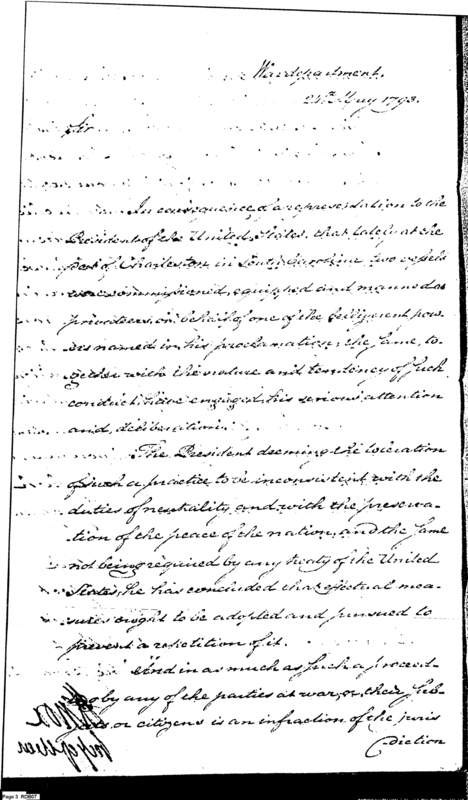 War department.
24th May 1793.
Sir
In consequence of a representation to the
President of the United States, that lately at the
port of Charleston in South Carolina two vessels
were commissioned, equipped and manned as
privateers on behalf of one of the belligerent pow-
ers named in his proclamation; the same, to-
gether with the nature and tendency of such
conduct, have engaged his serious attention
and deliberation.
The President deeming the toleration
of such a practice to be inconsistent with the
duties of neutrality and with the preserva-
tion of the peace of the nation, and the same
not being required by any treaty of the United
States, he has concluded that effectual mea-
sures ought to be adopted and pursued to
prevent a repetition of it.
And in as much as such a proceed-
ing by any of the parties at war, or their sub-
jects or citizens is an infraction of the juris
diction
Page 3 RDB07